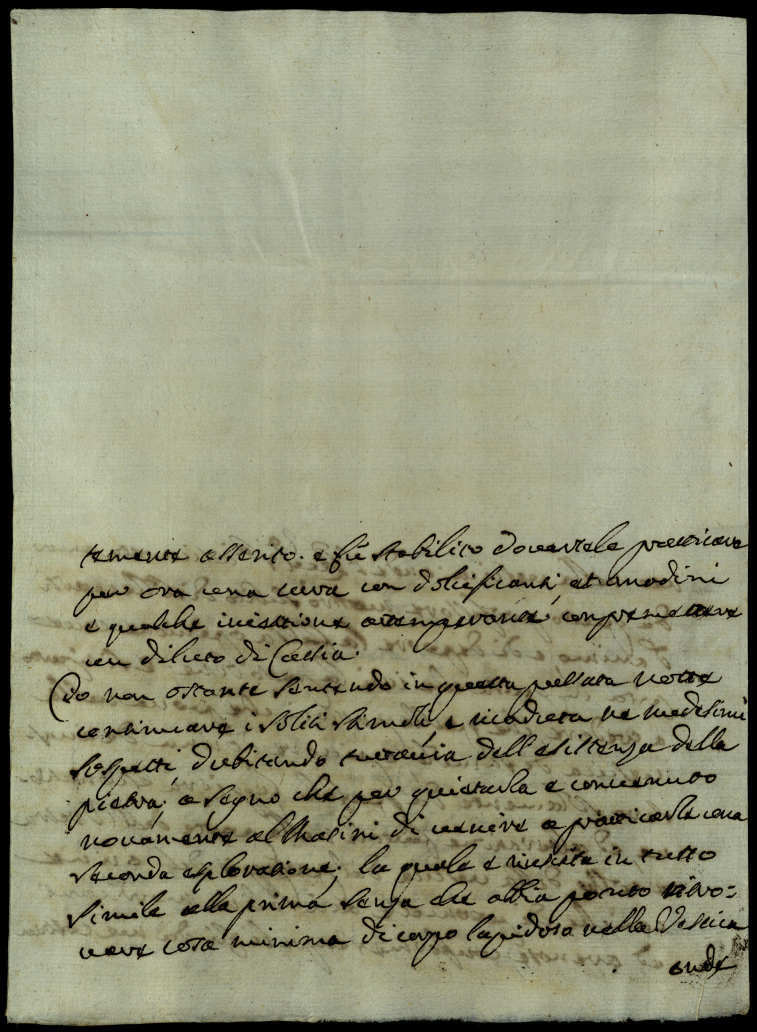 temente asserito. e fù stabilito doversele pratticare
per ora una cura con dolcificanti, et anodini
e qualche iniezzione attemperante, con premettere
un diluto di Cassia.
Ciò non ostante sentendo in questa passata notte
continuare i soliti stimoli, e ricaduta ne medesimi
sospetti, dubitando tuttavia dell'esistenza della
pietra; a segno che per quietarla è convenuto
novamente al Masini di venire a pratticarle una
seconda esplorazione; la quale è riuscita in tutto
simile alla prima senza che abbia potuto ritro=
vare cosa minima di corpo lapidoso nella Vessica
onde